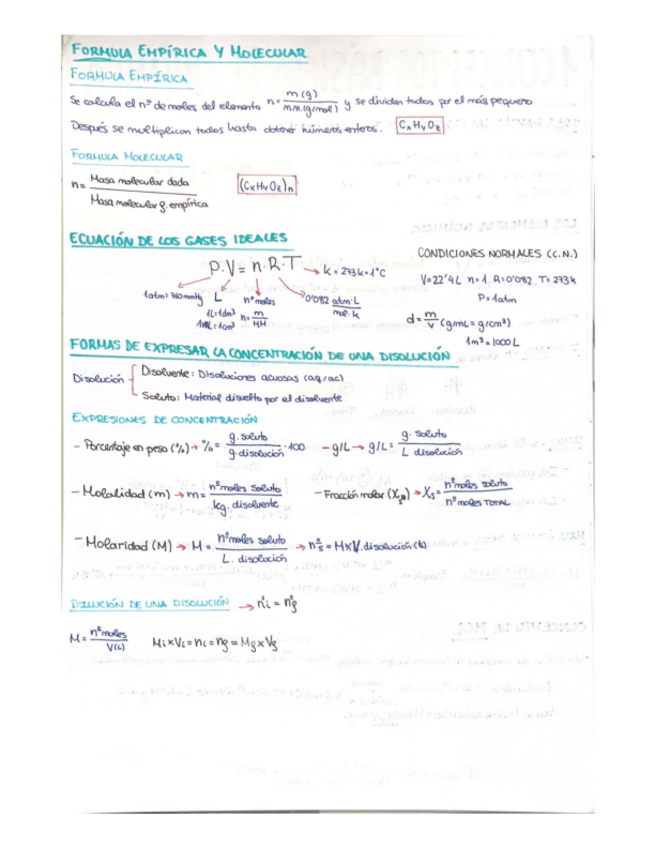 FORMULA EMPÍRICA Y MOLECULAR
FORMULA EMPÍRICA
Se calcula el nº de moles del elemento n = m(g) / m.m.(g/mol) y se dividen todos por el más pequeno
Después se multiplican todos hasta obtener números enteros. CxHyOz
FORMULA MOLECULAR
n = Masa molecular dada / Masa molecular f. empírica (CxHyOz)n
ECUACIÓN DE LOS GASES IDEALES
CONDICIONES NORMALES (C.N.)
P.V = n.R.T → k = 273k + 1°C
V=22'4L n=1 R=0'082, T=273k
P=1atm
1atm = 760mmHg L nº moles 0'082 atm.L / mol.k
1L=1dm³ n = m / MM
1mL=1cm³
d = m / V (g/mL = g/cm³)
1m³ = 1000L
FORMAS DE EXPRESAR LA CONCENTRACIÓN DE UNA DISOLUCIÓN
Disolución
Disolvente: Disoluciones acuosas (aq/ac)
Soluto: Material disuelto por el disolvente
EXPRESIONES DE CONCENTRACIÓN
- Porcentaje en peso (%) → % = g.soluto / g.disolución · 100 - g/L → g/L = g.soluto / L disolución
- Molalidad (m) → m = nº moles soluto / kg.disolvente - Fracción molar (Xs) → Xs = nº moles soluto / nº moles TOTAL
- Molaridad (M) → M = nº moles soluto / L. disolución → nºs = M×V.disolución (L)
DILUCIÓN DE UNA DISOLUCIÓN → nºi = nºf
M = nº moles / V(L) Mi×Vi = ni = nf = Mf×Vf